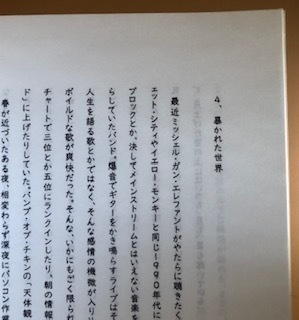 4、暴かれた世界
最近ミッシェル・ガン・エレファントがやたらに聴きたく
ェット・シティやイエロー・モンキーと同じ1990年代に
ブロックとか、決してメインストリームとはいえない音楽
らしていたバンド。爆音でギターをかき鳴らすライブは
人生を語る歌とかではなく、そんな感情の機微が入り
ボイルドな歌が爽快だった。そんな、いかにもごく限られ
チャートで三位とか五位にランクインしたり、朝の情報
ド」に上げたりしていた。バンプ・オブ・チキンの「天体観
春が近づいたある夜、相変わらず深夜にパソコン作業